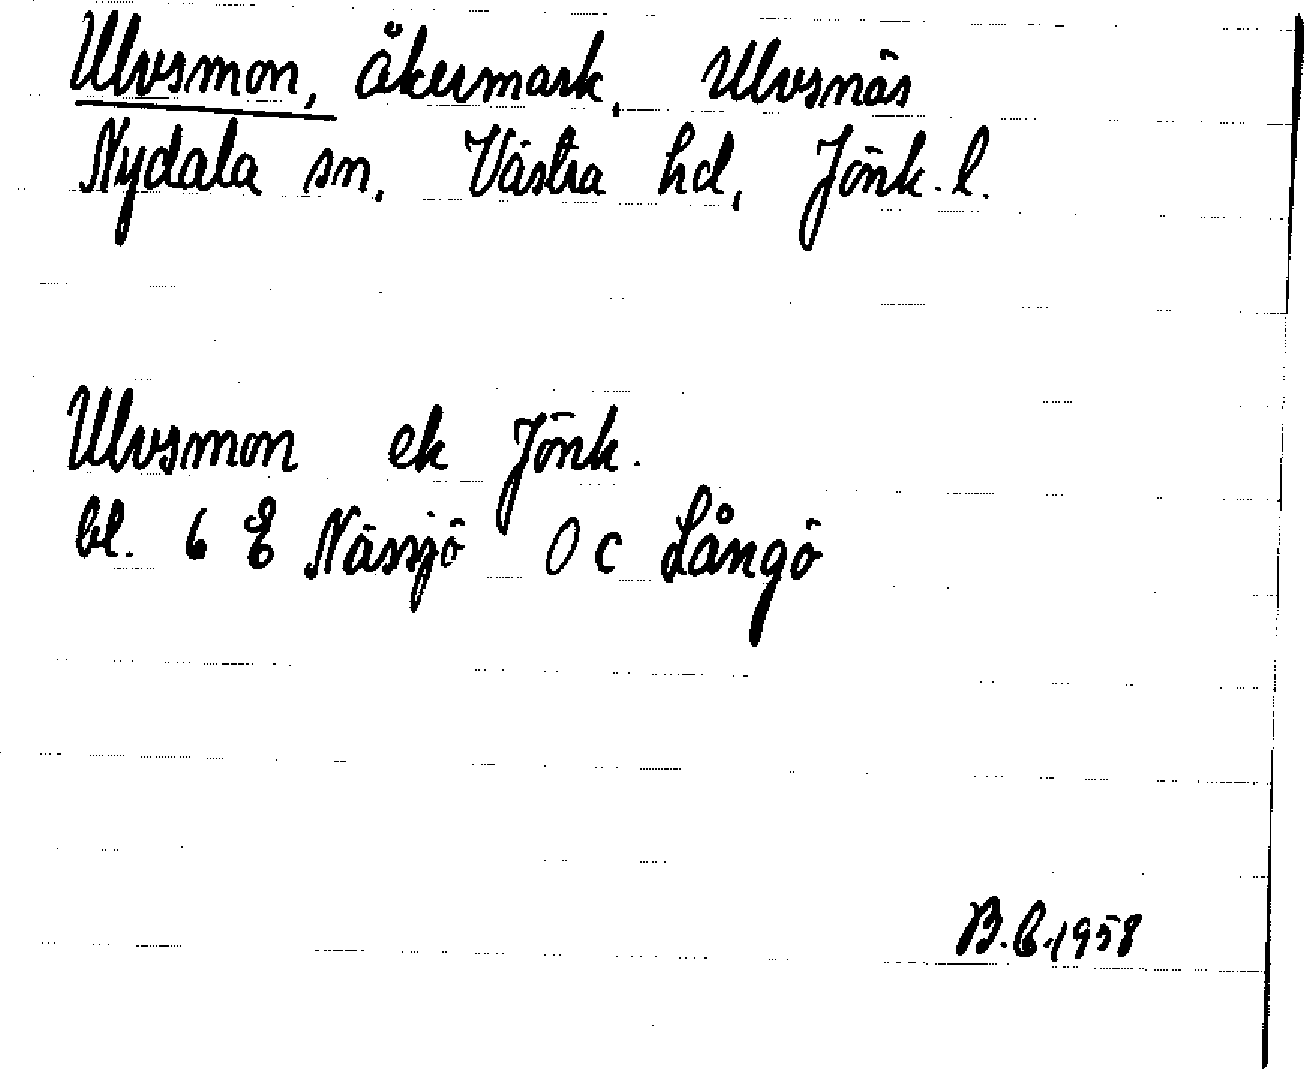 Ulvsmon, åkermark, Ulvsnäs
Nydala sn, Västra hd, Jönk. l.
Ulvsmon ek Jönk.
bl. 6 E Nässjö 0 c Långö
B.C. 1958